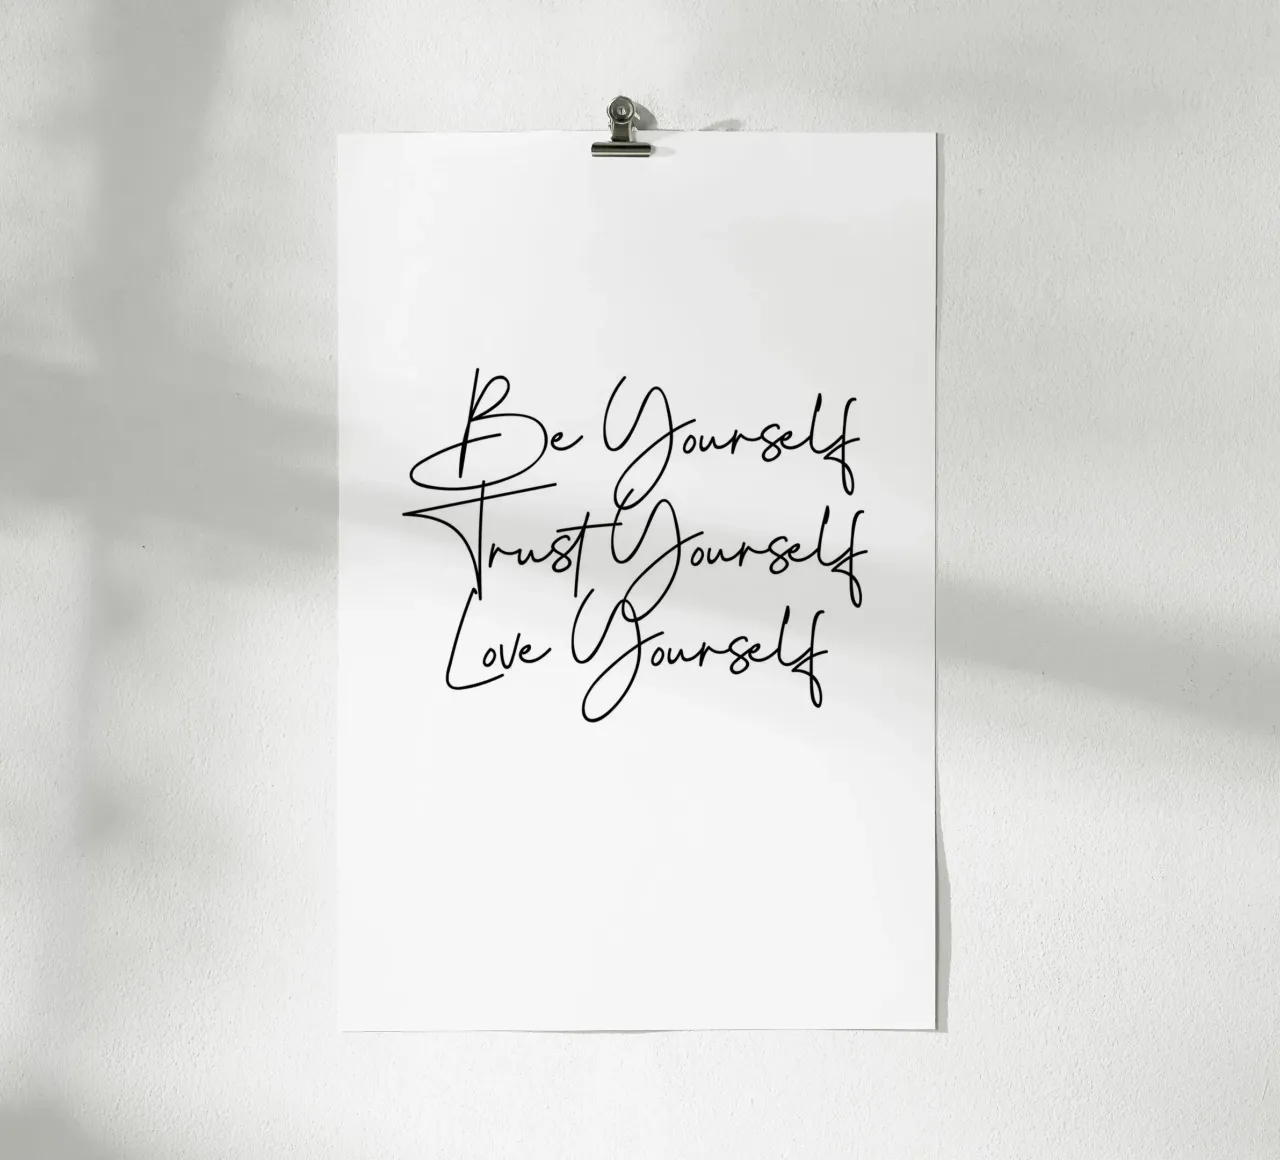 Be Yourself
Trust Yourself
Love Yourself